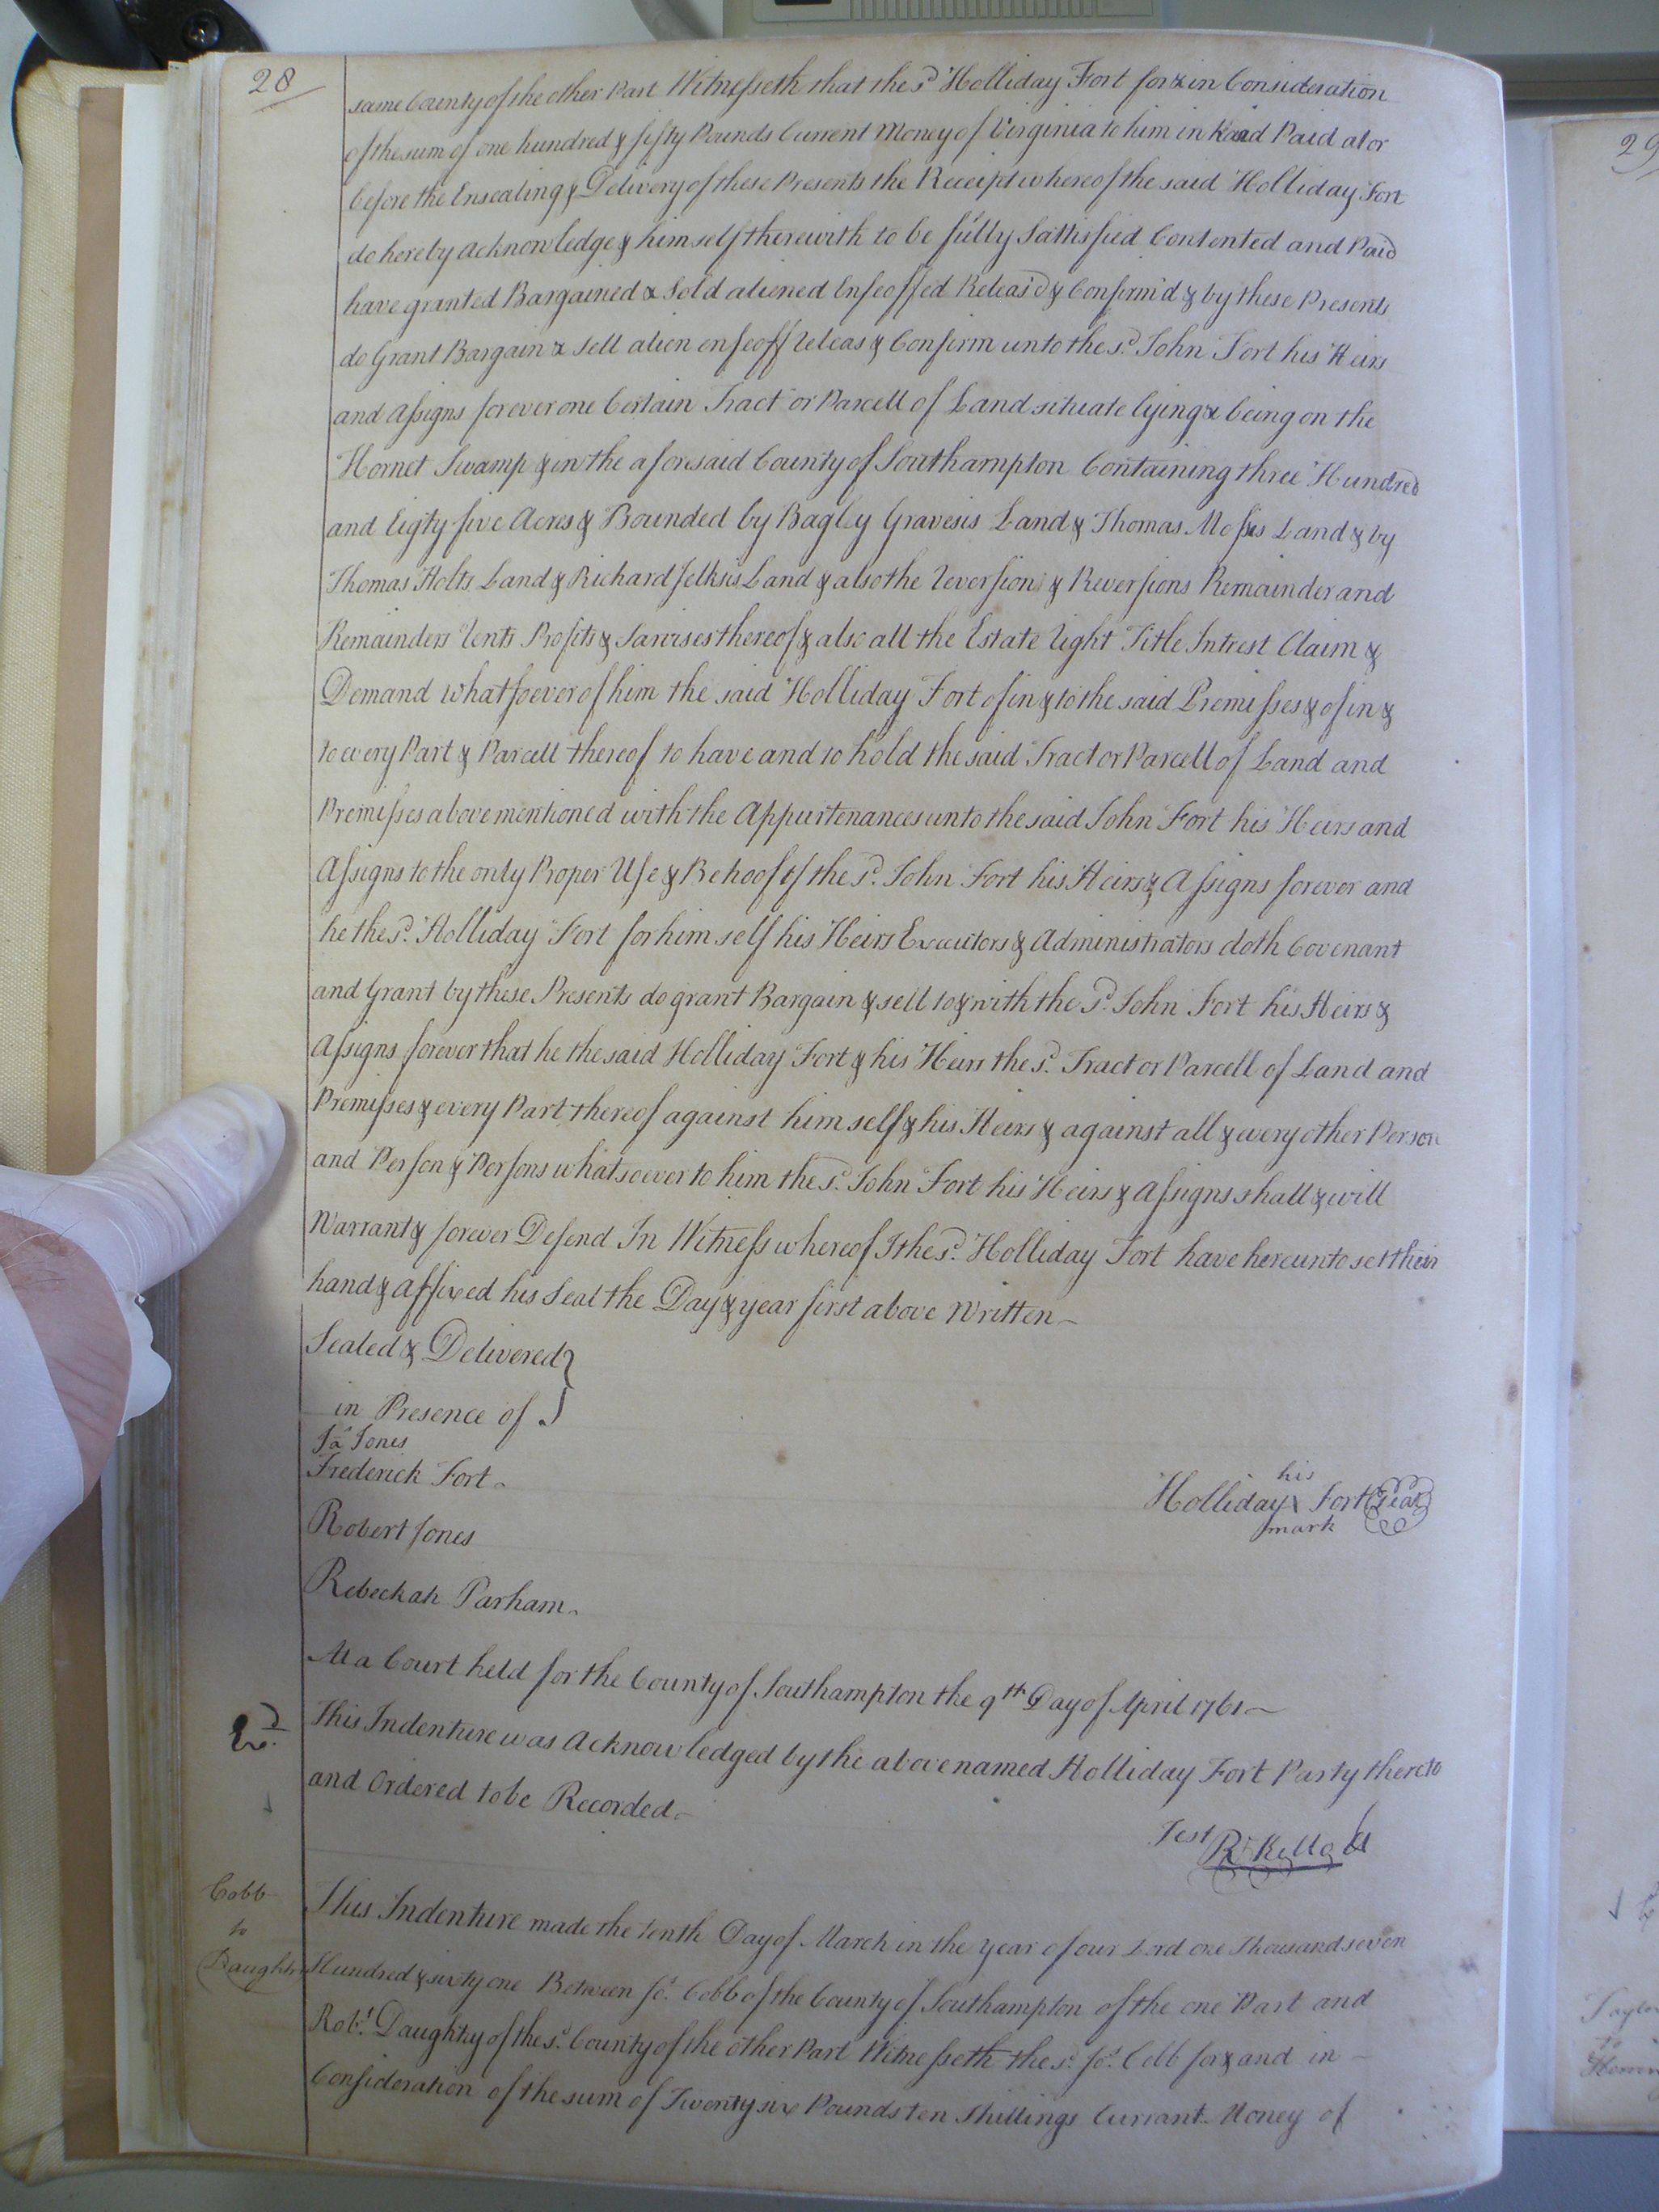 28
same County of the other Part Witnesseth that the sd Holliday Fort for & in Consideration
of the sum of one hundred & fifty Pounds Current Money of Virginia to him in hand Paid at or
before the Ensealing & Delivery of these Presents the Receipt whereof the said Holliday Fort
do hereby acknowledge & himself therewith to be fully Sattisfied Contented and Paid
have granted Bargained & Sold aliened Enfeoffed Releas'd & Confirm'd & by these Presents
do Grant Bargain & sell alien enfeoff releas & Confirm unto the sd. John Fort his Heirs
and assigns forever one Certain Tract or Parcell of Land situate lying & being on the
Hornet Swamp & in the aforesaid County of Southampton Containing three Hundred
and Eigty five Acres & Bounded by Bagby Gravesis Land & Thomas Mosis Land & by
Thomas Holts Land & Richard Land & also the reversion & Reversions Remainder and
Remainders rents Profits & Sarvises thereof & also all the Estate right Title Intrest Claim &
Demand whatsoever of him the said Holliday Fort of in & to the said Premisses & of in &
to every Part & Parcell thereof to have and to hold the said Tract or Parcell of Land and
Premisses above mentioned with the Appurtenances unto the said John Fort his Heirs and
Assigns to the only Proper Use & Behoof of the sd. John Fort his Heirs & Assigns forever and
he the sd. Holliday Fort for himself his Heirs Executors & Administrators doth Covenant
and Grant by these Presents do grant Bargain & sell to & with the sd. John Fort his Heirs &
Assigns forever that he the said Holliday Fort & his Heirs the sd. Tract or Parcell of Land and
Premisses & every Part thereof against himself & his Heirs & against all & every other Person
and Person & Persons whatsoever to him the sd. John Fort his Heirs & Assigns shall & will
Warrant & forever Defend In Witness whereof I the sd. Holliday Fort have hereunto set their
hand & affixed his Seal the Day & year first above Written
Sealed & Delivered }
in Presence of
Ja Jones
Frederick Fort
Robert Jones
Rebeckah Parham
his
Holliday x Fort Seal
mark
At a Court held for the County of Southampton the 9th Day of April 1761
This Indenture was Acknowledged by the above named Holliday Fort Party thereto
and Ordered to be Recorded
Test
Cobb
to
Daughtry
This Indenture made the tenth Day of March in the year of our Lord one Thousand seven
Hundred & sixty one Between Jos. Cobb of the County of Southampton of the one Part and
Robt. Daughtry of the sd. County of the other Part Witnesseth the sd. Jos. Cobb for & and in
Consideration of the sum of Twenty six Pounds ten Shillings Currant Money of
29